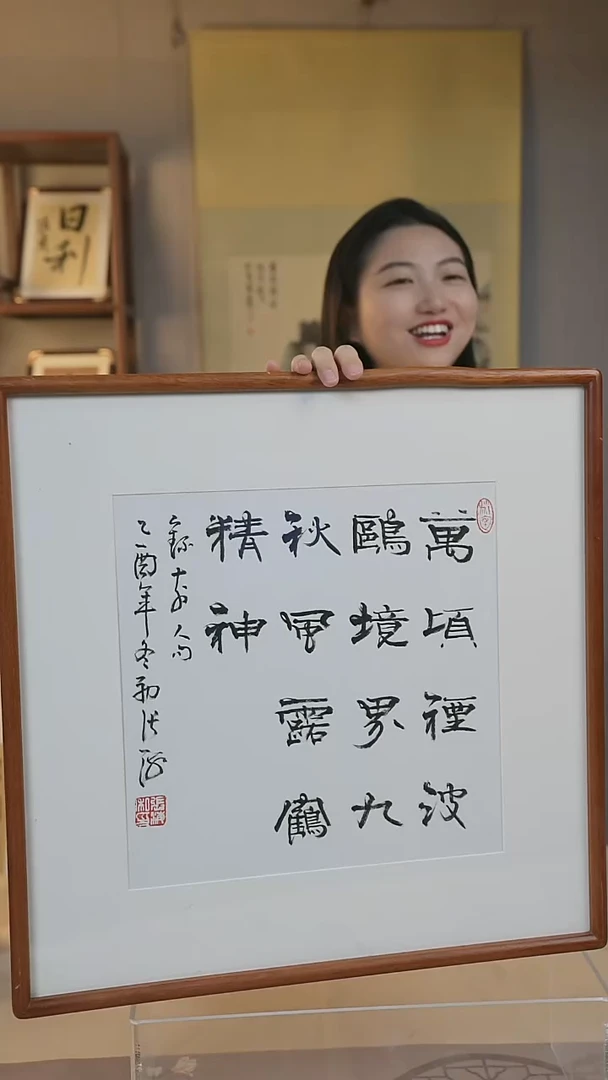 萬頃煙波
鷗境界九
秋風露鶴
精神
錄人句
乙酉年冬初張海
日利